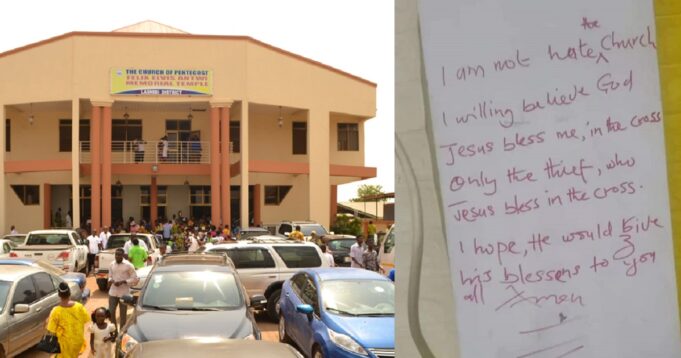 THE CHURCH OF PENTECOST
FELIX ELVIS ANTWI
MEMORIAL TEMPLE
LASHIBI DISTRICT
I am not hate the Church
I willing believe God
Jesus bless me, in the cross
Only the thief, who
Jesus bless in the cross.
I hope, He would give
his blessens to you
all Amen